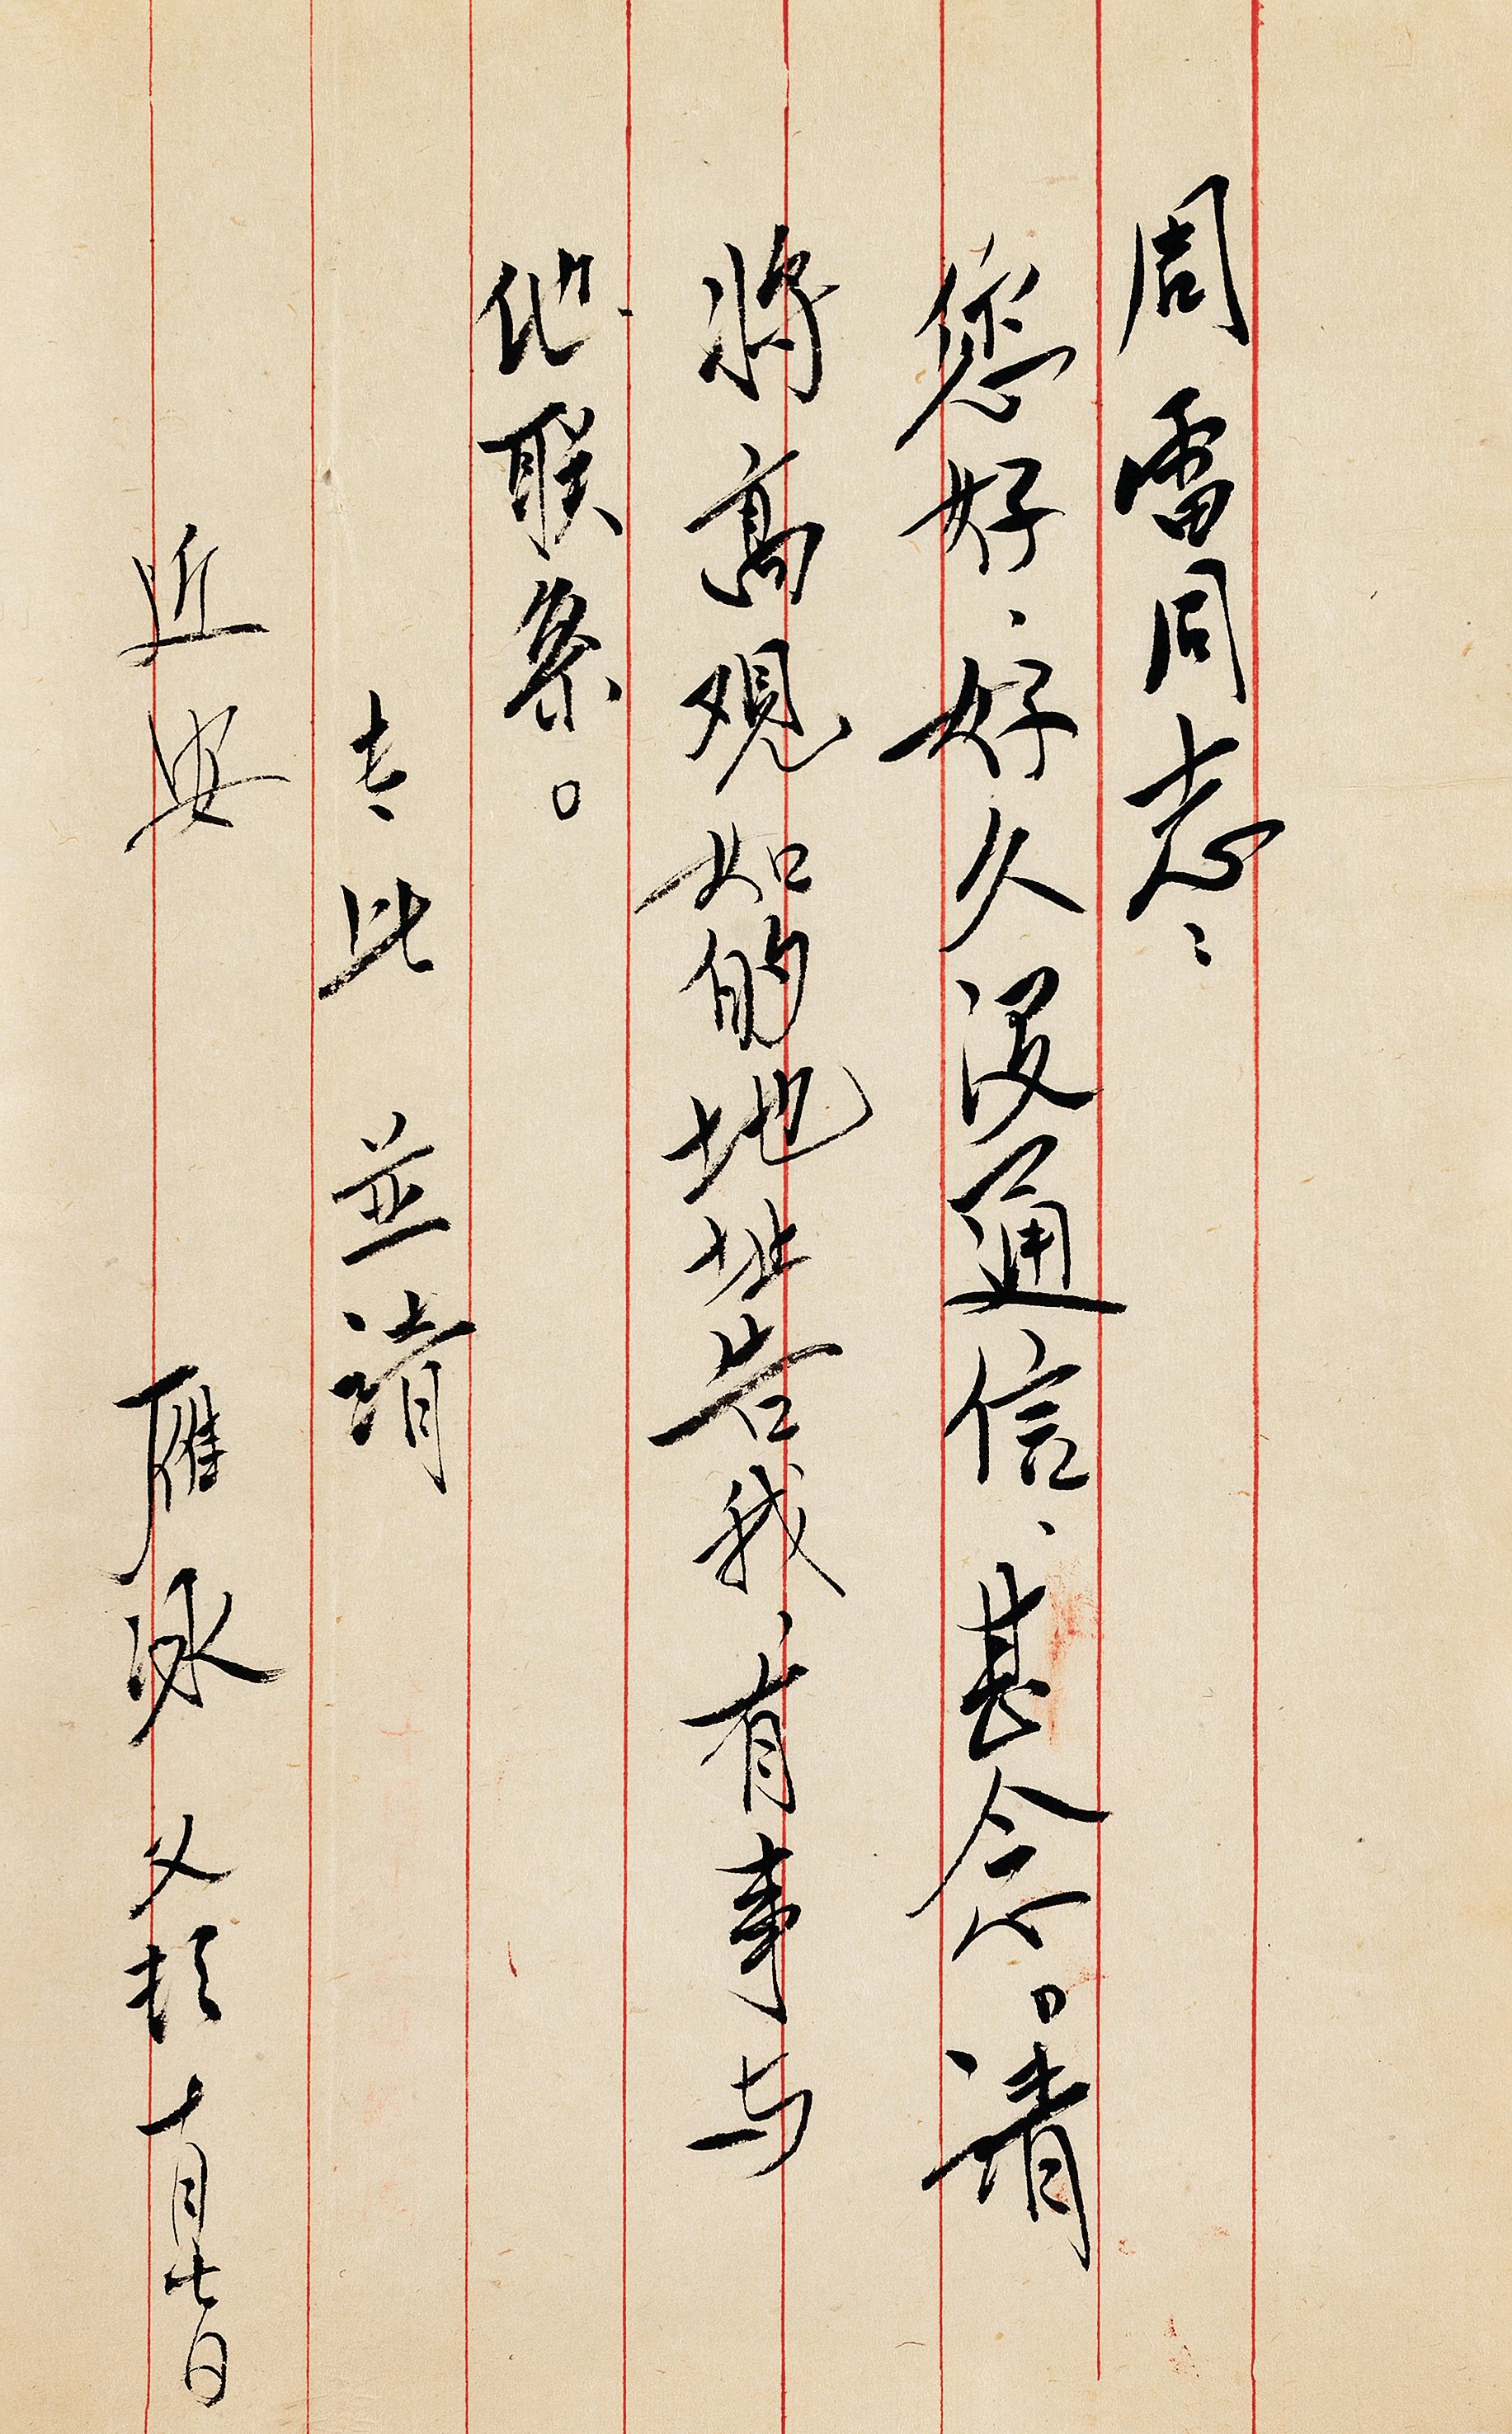 周雷同志：
您好，好久没通信，甚念。请
将高观如的地址告我，有事与
他联系。
专此 並请
近安
雁冰 父
十月七日